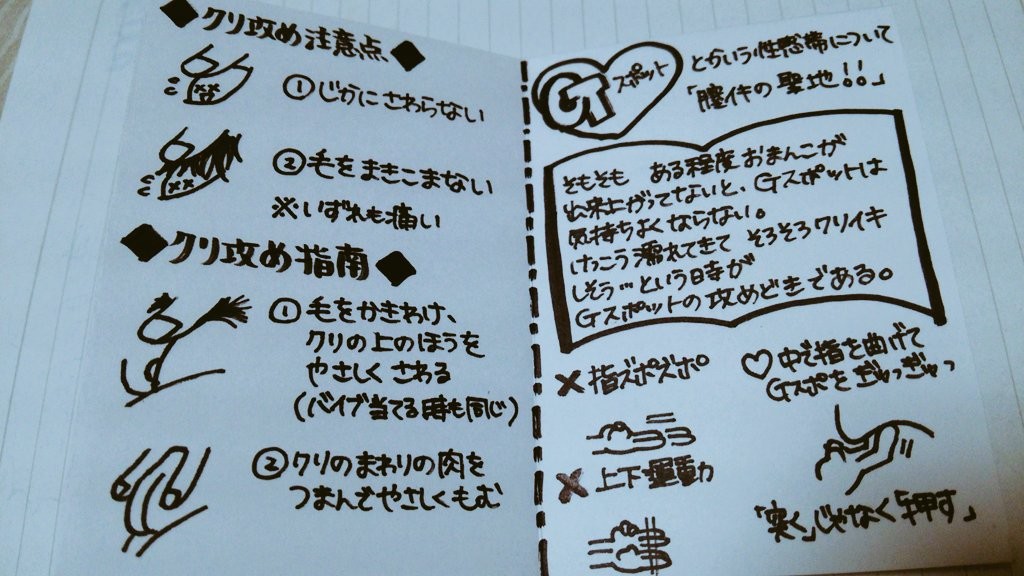 ◆クリ攻め注意点◆
①じかにさわらない
②毛をまきこまない
※いずれも痛い
◆クリ攻め指南◆
①毛をかきわけ、
クリの上のほうを
やさしくさわる
(バイブ当てる時も同じ)
②クリのまわりの肉を
つまんでやさしくもむ
Gスポット
とかいう性感帯について
「膣イキの聖地!!」
そもそも ある程度おまんこが
出来上がってないと、Gスポットは
気持ちよくならない。
けっこう濡れてきて そろそろクリイキ
しそう…という時が
Gスポットの攻めどきである。
×指ズポズポ
×上下運動
♡中で指を曲げて
Gスポをぎゅっぎゅっ
「突く」じゃなく「押す」